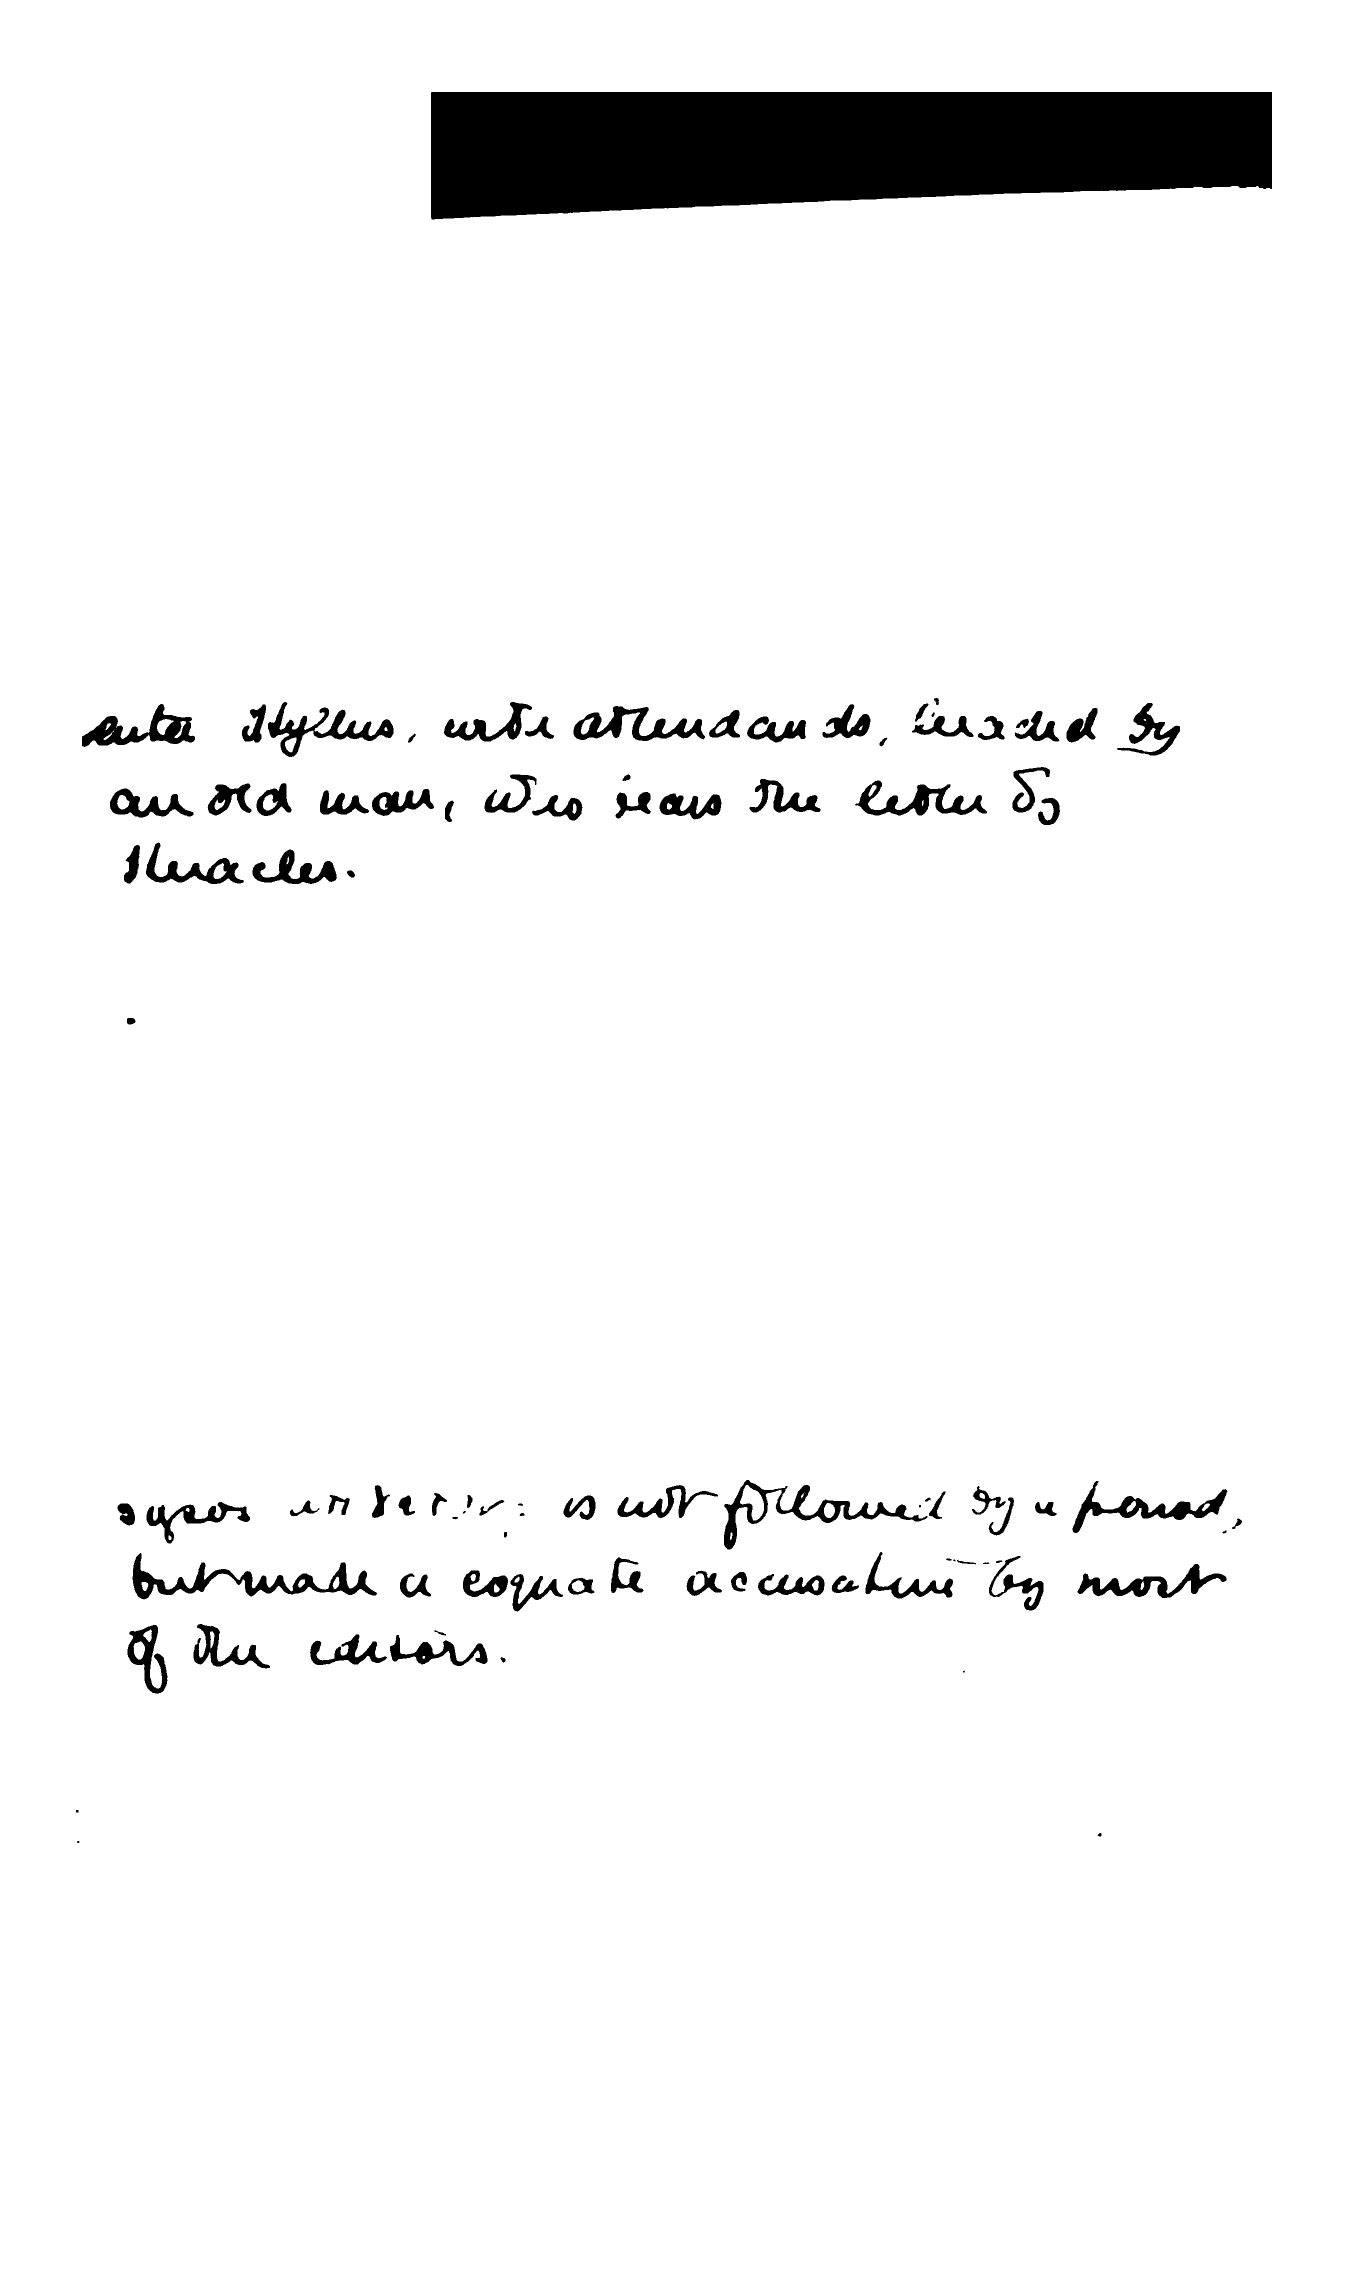 enter Hyllus, with attendants, headed by
an old man, who bears the letter by
Heracles.
is not followed by a period,
but made a cognate accusative by most
of the editors.